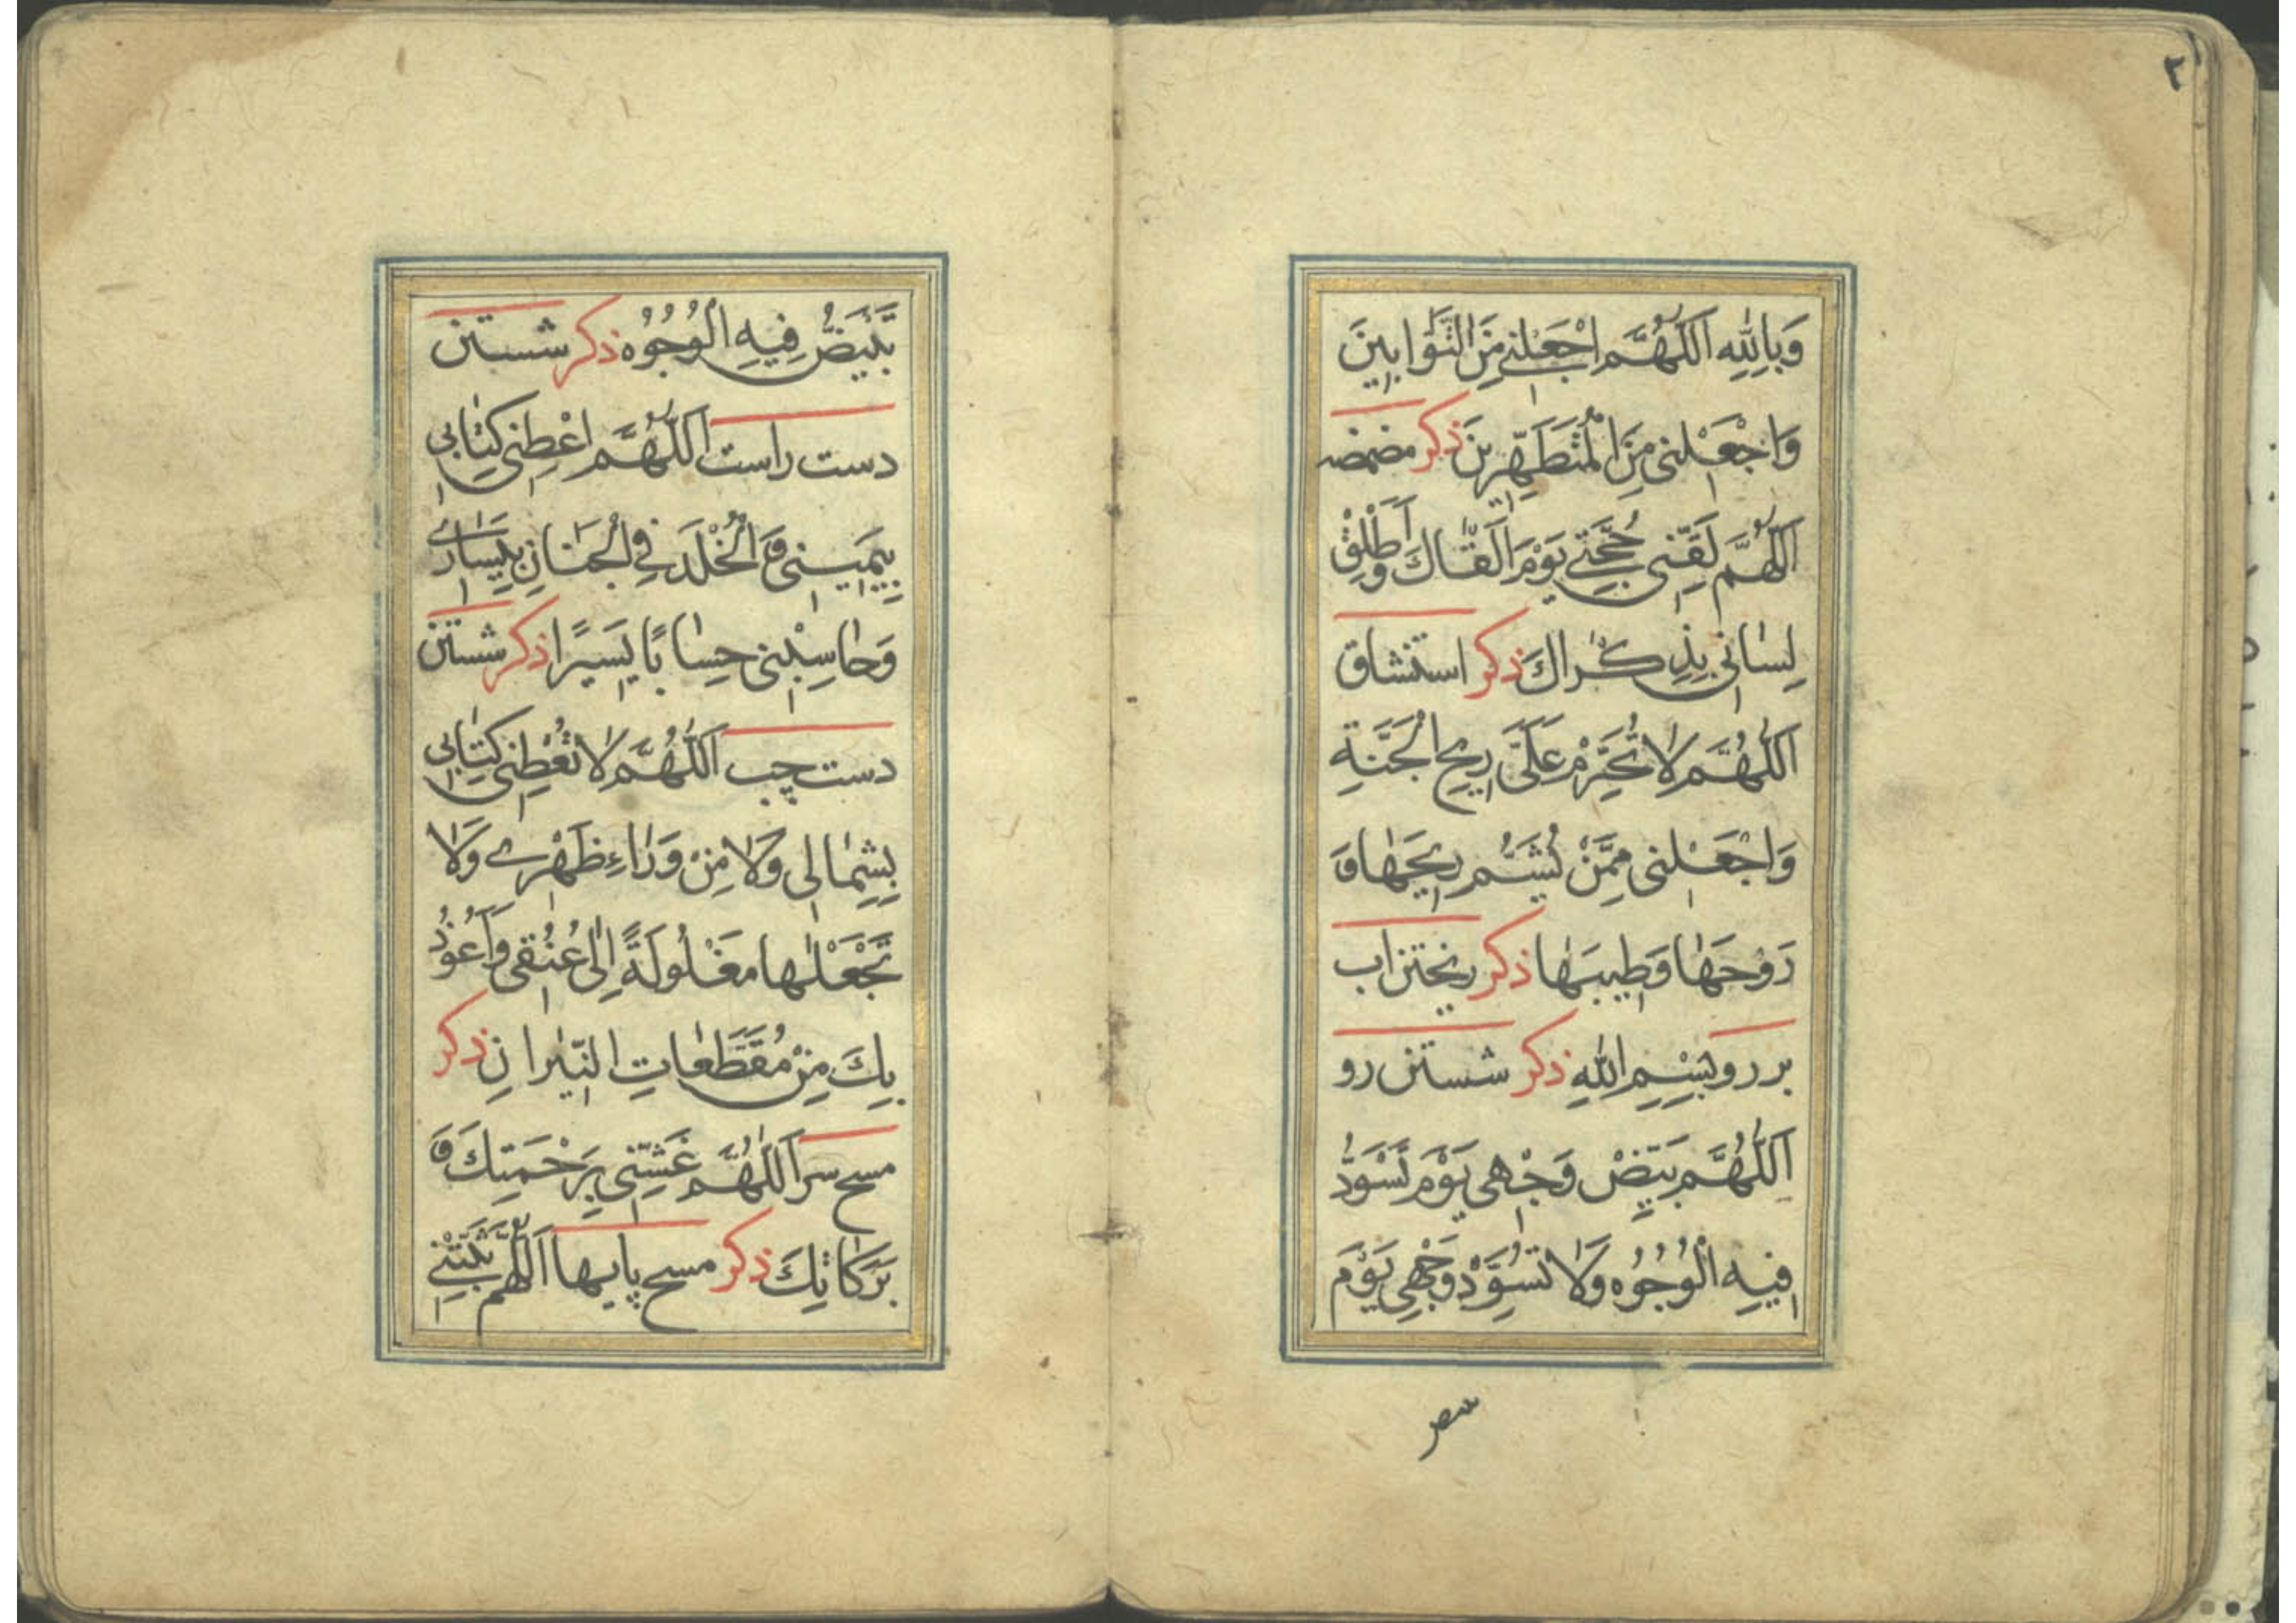 ٣
وَبِاللّٰهِ اَللّٰهُمَّ اجْعَلْنِي مِنَ التَّوَّابِينَ
وَاجْعَلْنِي مِنَ الْمُتَطَهِّرِينَ ذكر مضمضه
اَللّٰهُمَّ لَقِّنِي حُجَّتِي يَوْمَ اَلْقَاكَ وَاَطْلِقْ
لِسَانِي بِذِكْرَاكَ ذكر استنشاق
اَللّٰهُمَّ لَا تُحَرِّمْ عَلَيَّ رِيحَ الْجَنَّةِ
وَاجْعَلْنِي مِمَّنْ يَشَمُّ رِيحَهَا وَ
رَوْحَهَا وَطِيبَهَا ذكر ريختن اب
بر رو بِسْمِ اللّٰهِ ذكر شستن رو
اَللّٰهُمَّ بَيِّضْ وَجْهِي يَوْمَ تَسْوَدُّ
فِيهِ الْوُجُوهُ وَلَا تُسَوِّدْ وَجْهِي يَوْمَ
تَبْيَضُّ فِيهِ الْوُجُوهُ ذكر شستن
دست راست اَللّٰهُمَّ اَعْطِنِي كِتَابِي
بِيَمِينِي وَ الْخُلْدَ فِي الْجِنَانِ بِيَسَارِي
وَحَاسِبْنِي حِسَابًا يَسِيرًا ذكر شستن
دست چپ اَللّٰهُمَّ لَا تُعْطِنِي كِتَابِي
بِشِمَالِي وَلَا مِنْ وَرَاءِ ظَهْرِي وَلَا
تَجْعَلْهَا مَغْلُولَةً اِلٰى عُنُقِي وَاَعُوذُ
بِكَ مِنْ مُقَطَّعَاتِ النِّيرَانِ ذكر
مسح سر اَللّٰهُمَّ غَشِّنِي بِرَحْمَتِكَ وَ
بَرَكَاتِكَ ذكر مسح پايها اَللّٰهُمَّ ثَبِّتْنِي